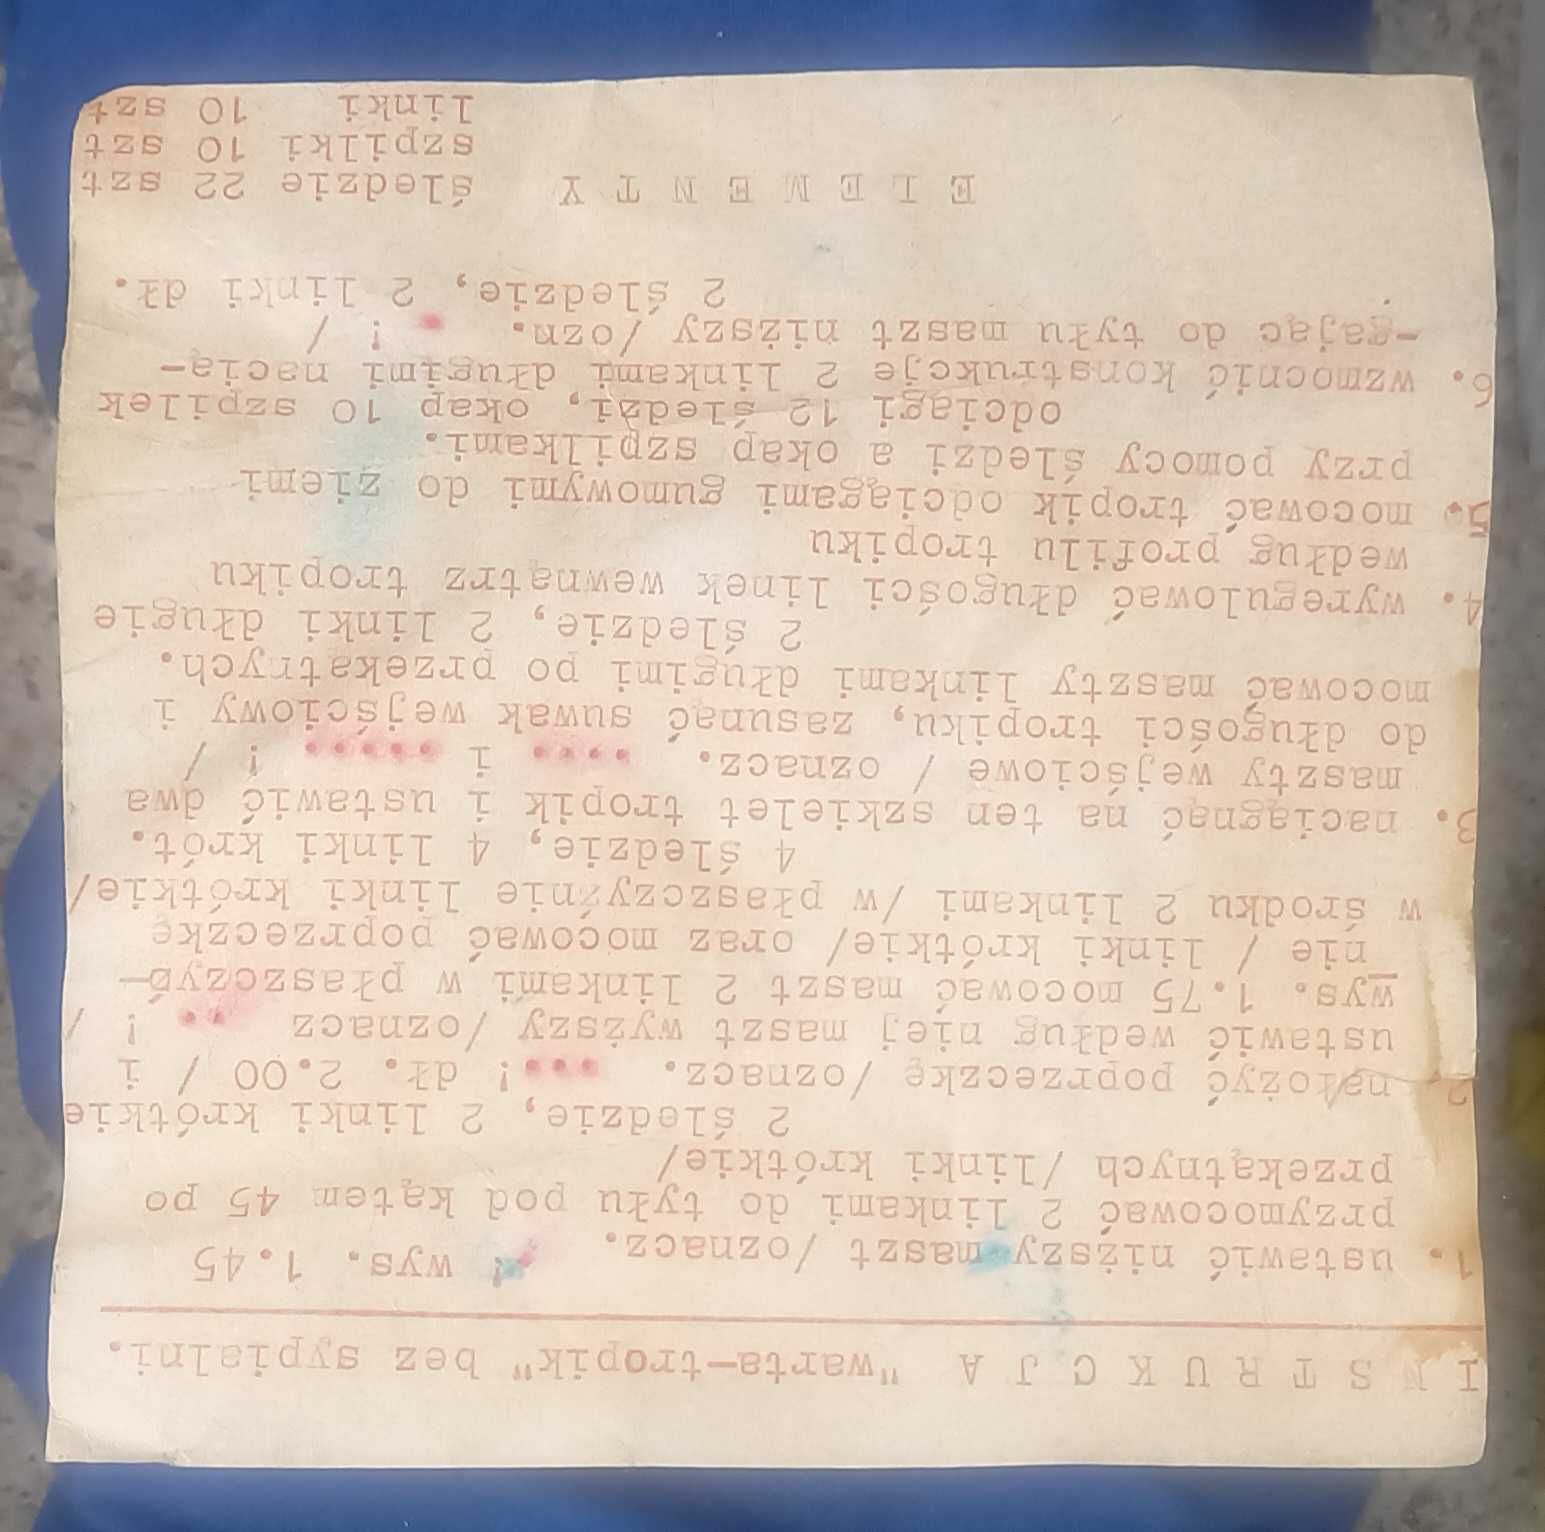 I N S T R U K C J A "warta-tropik" bez sypialni.
1. ustawić niższy maszt /oznacz. ! wys. 1.45
przymocować 2 linkami do tyłu pod kątem 45 po
przekątnych /linki krótkie/
2 śledzie, 2 linki krótkie
2 nałożyć poprzeczkę /oznacz. •••! dł. 2.00 / i
ustawić według niej maszt wyższy /oznacz •• ! /
wys. 1.75 mocować maszt 2 linkami w płaszczyź-
nie / linki krótkie/ oraz mocować poprzeczkę
w środku 2 linkami /w płaszczyźnie linki krótkie/
4 śledzie, 4 linki krót.
3. naciągnąć na ten szkielet tropik i ustawić dwa
maszty wejściowe / oznacz. •••• i ••••• ! /
do długości tropiku, zasunąć suwak wejściowy i
mocować maszty linkami długimi po przekatnych.
2 śledzie, 2 linki długie
4. wyregulować długości linek wewnątrz tropiku
według profilu tropiku
5. mocować tropik odciągami gumowymi do ziemi
przy pomocy śledzi a okap szpilkami.
odciągi 12 śledzi, okap 10 szpilek
6. wzmocnić konstrukcje 2 linkami długimi nacią-
-gając do tyłu maszt niższy /ozn. • ! /
2 śledzie, 2 linki dł.
E L E M E N T Y śledzie 22 szt
szpilki 10 szt
linki 10 szt